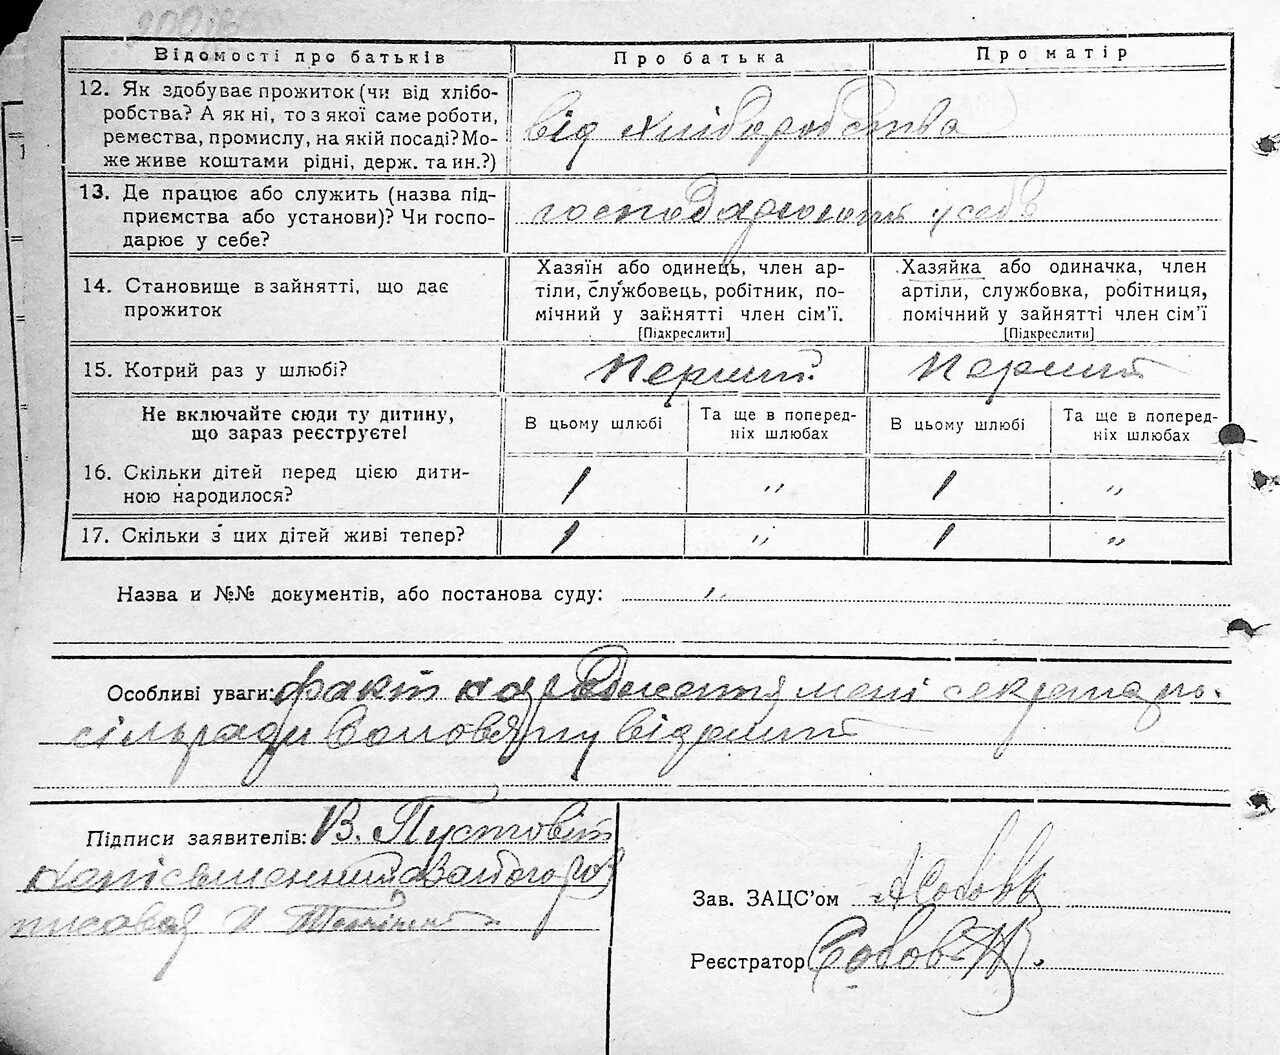 Відомості про батьків Про батька Про матір
12. Як здобуває прожиток (чи від хлібо-
робства? А як ні, то з якої саме роботи,
ремества, промислу, на якій посаді? Мо-
же живе коштами рідні, держ. та ин.?)
від хліборобства
13. Де працює або служить (назва під-
приємства або установи)? Чи госпо-
дарює у себе?
господарюють у себе
14. Становище в зайнятті, що дає
прожиток
Хазяїн або одинець, член ар-
тілі, службовець, робітник, по-
мічний у зайнятті член сім’ї.
[Підкреслити]
Хазяйка або одиначка, член
артіли, службовка, робітниця,
помічний у зайнятті член сім’ї
[Підкреслити]
15. Котрий раз у шлюбі? Перший. Перший
Не включайте сюди ту дитину,
що зараз реєструєте!
В цьому шлюбі
Та ще в поперед-
ніх шлюбах
В цьому шлюбі
Та ще в поперед-
ніх шлюбах
16. Скільки дітей перед цією дити-
ною народилося?
1 " 1 "
17. Скільки з цих дітей живі тепер? 1 " 1 "
Назва и №№ документів, або постанова суду: "
Особливі уваги: факт народження мені секретарю
сільради Соловяну відомий
Підписи заявителів: В. Пустовіт
неписьменний за його роз
писався
Зав. ЗАЦС’ом
Реєстратор